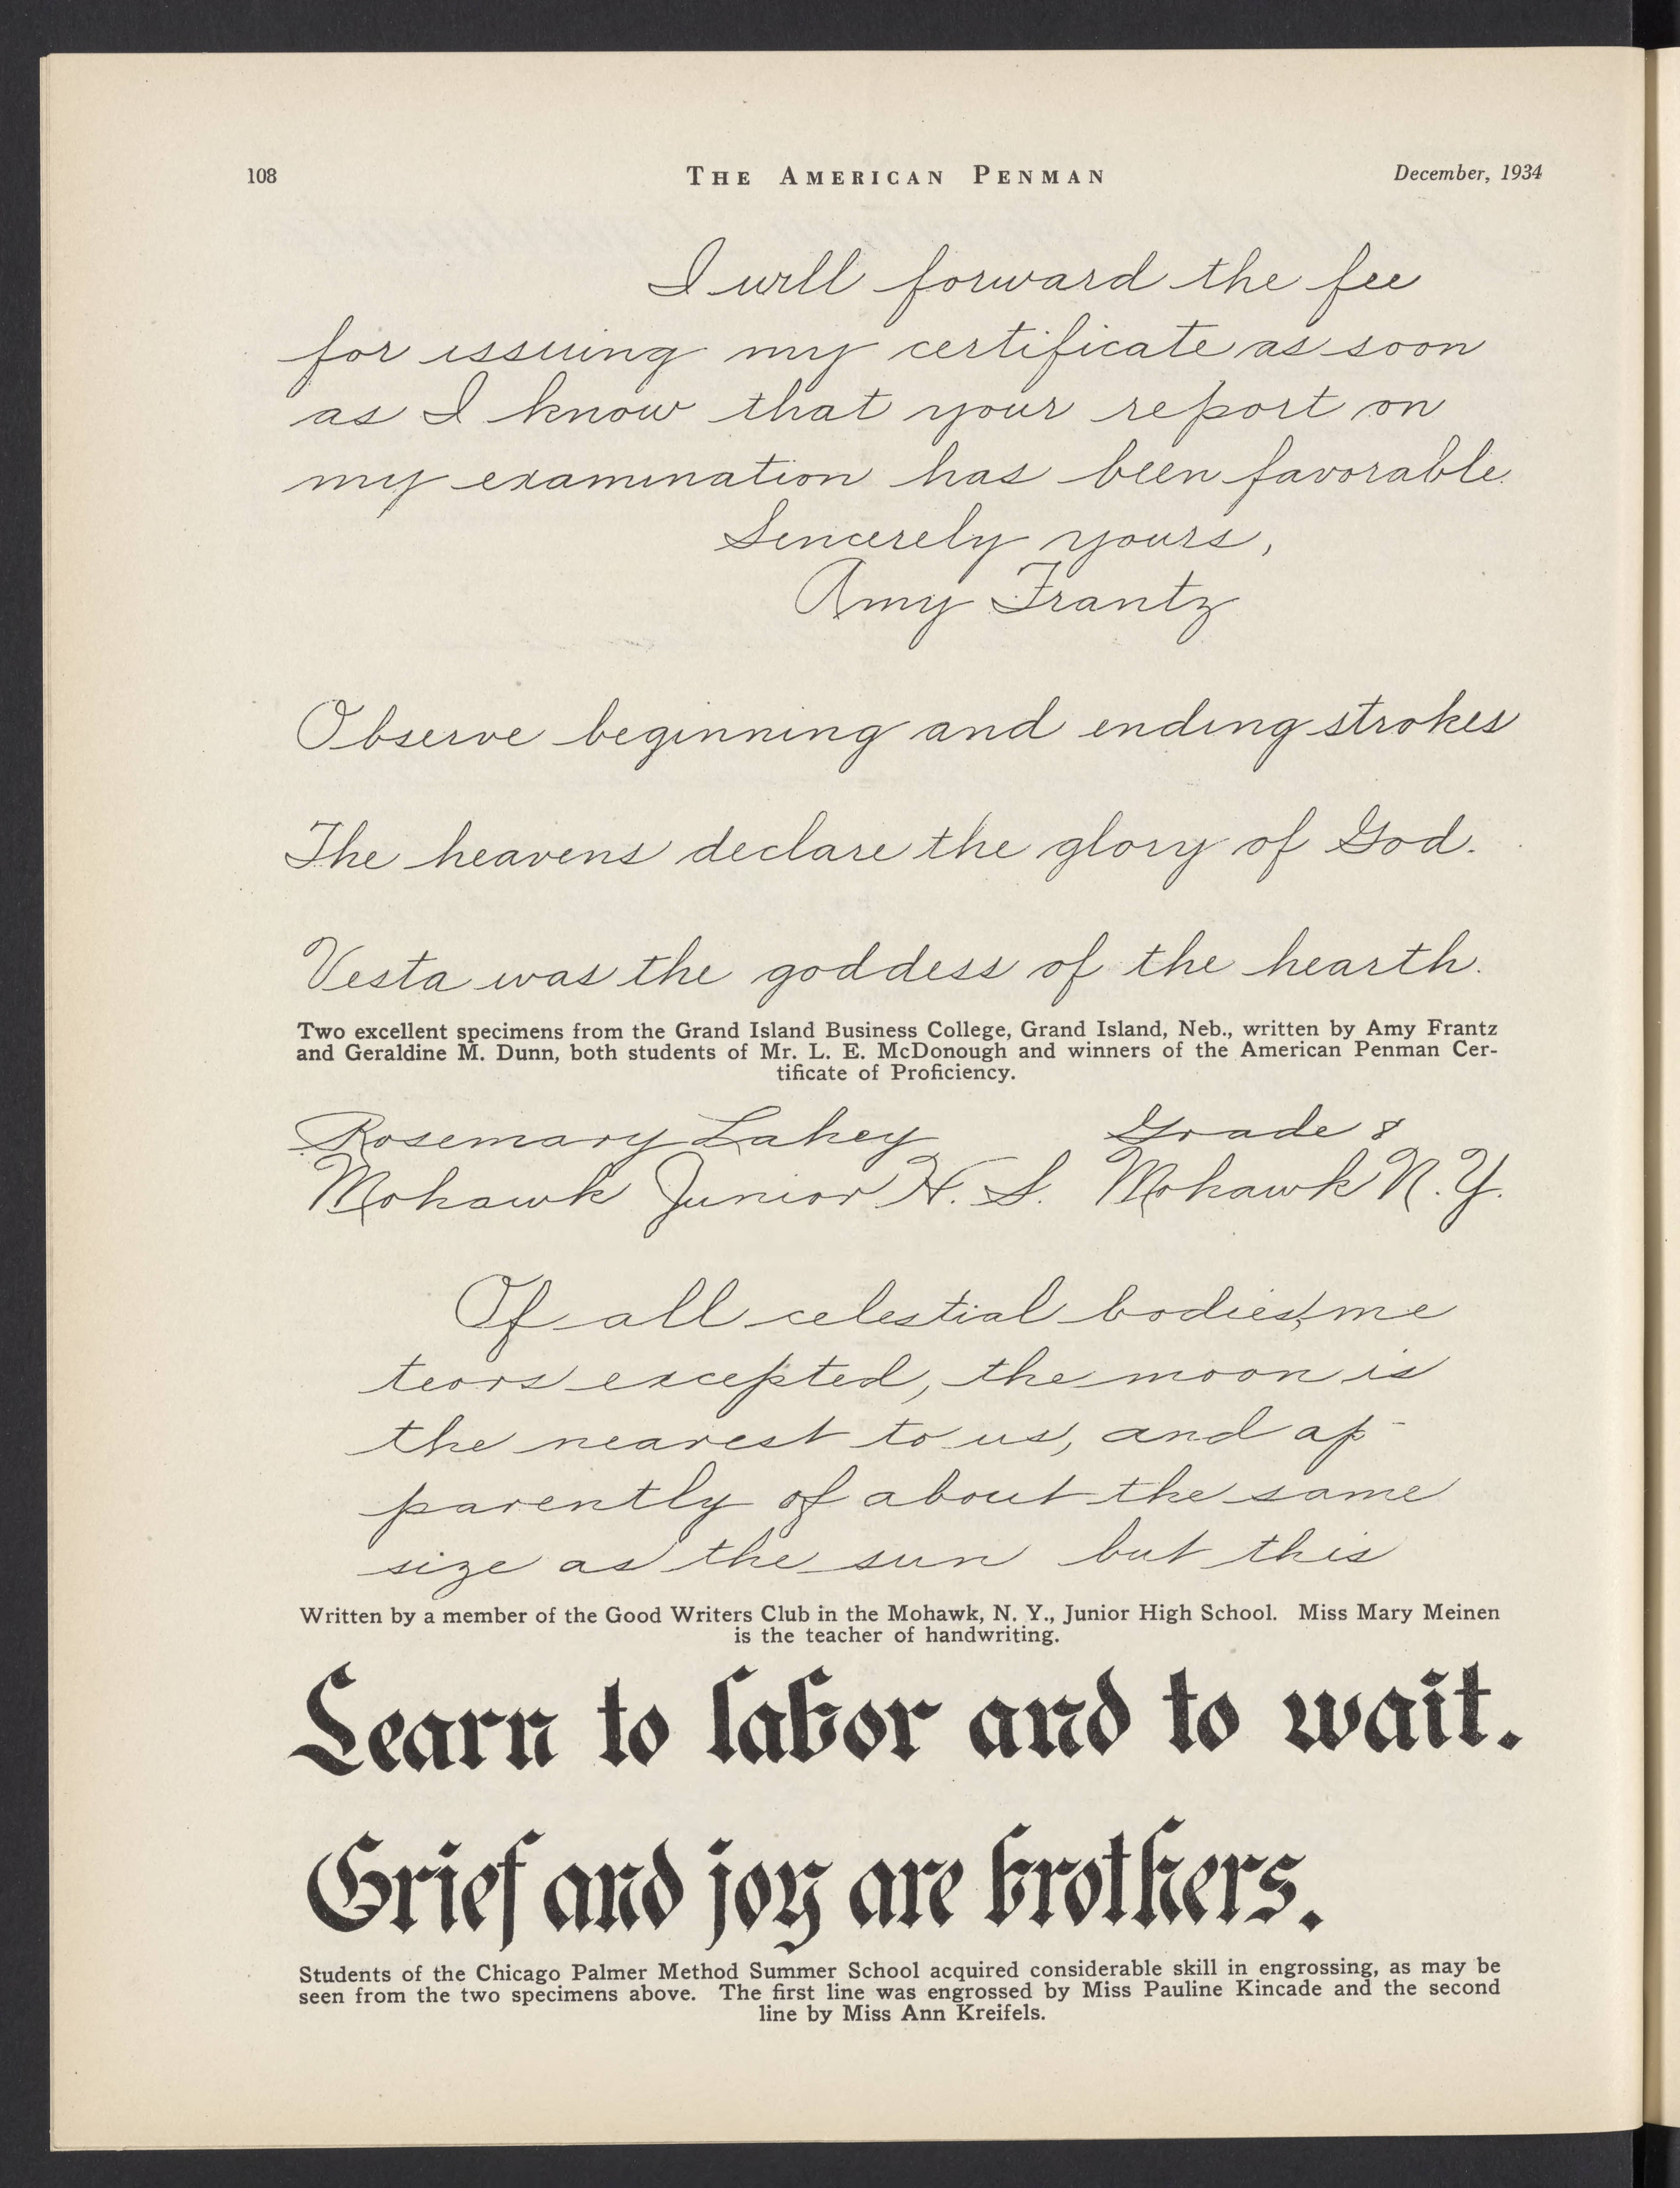 108
THE AMERICAN PENMAN
December, 1934
I will forward the fee
for issuing my certificate as soon
as I know that your report on
my examination has been favorable.
Sincerely yours,
Amy Frantz
Observe beginning and ending strokes
The heavens declare the glory of God.
Vesta was the goddess of the hearth.
Two excellent specimens from the Grand Island Business College, Grand Island, Neb., written by Amy Frantz
and Geraldine M. Dunn, both students of Mr. L. E. McDonough and winners of the American Penman Cer-
tificate of Proficiency.
Rosemary Lahey Grade 8
Mohawk Junior H. S. Mohawk N. Y.
Of all celestial bodies, me
teors excepted, the moon is
the nearest to us, and ap-
parently of about the same
size as the sun but this
Written by a member of the Good Writers Club in the Mohawk, N. Y., Junior High School. Miss Mary Meinen
is the teacher of handwriting.
Learn to labor and to wait.
Grief and joy are brothers.
Students of the Chicago Palmer Method Summer School acquired considerable skill in engrossing, as may be
seen from the two specimens above. The first line was engrossed by Miss Pauline Kincade and the second
line by Miss Ann Kreifels.